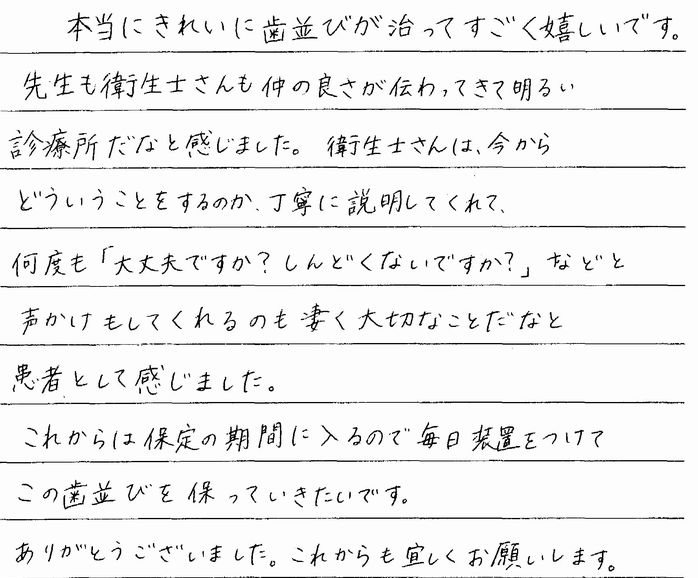 本当にきれいに歯並びが治ってすごく嬉しいです。
先生も衛生士さんも仲の良さが伝わってきて明るい
診療所だなと感じました。 衛生士さんは、今から
どういうことをするのか、丁寧に説明してくれて、
何度も「大丈夫ですか？しんどくないですか？」などと
声かけもしてくれるのも凄く大切なことだなと
患者として感じました。
これからは保定の期間に入るので毎日装置をつけて
この歯並びを保っていきたいです。
ありがとうございました。これからも宜しくお願いします。